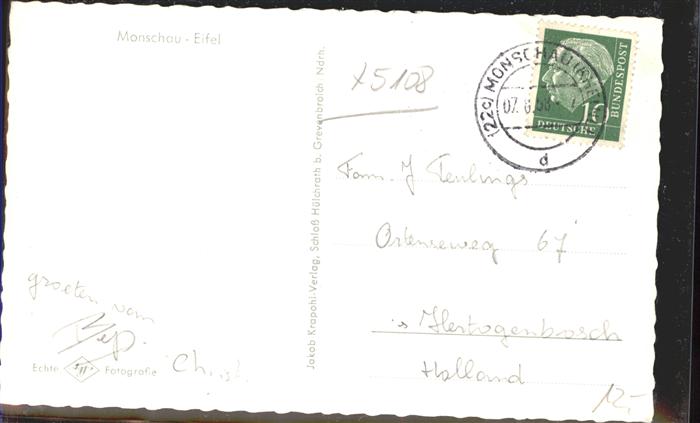 Monschau - Eifel
X5108
(22c) MONSCHAU
07.6.56
d
10
DEUTSCHE BUNDESPOST
Fam. J Teulings
Ortenseweg 67
's Hertogenbosch
Holland
groeten van
Christ.
Echte Fotografie
Jakob Krapohl-Verlag, Schloß Hülchrath b. Grevenbroich Ndrh.
12,-